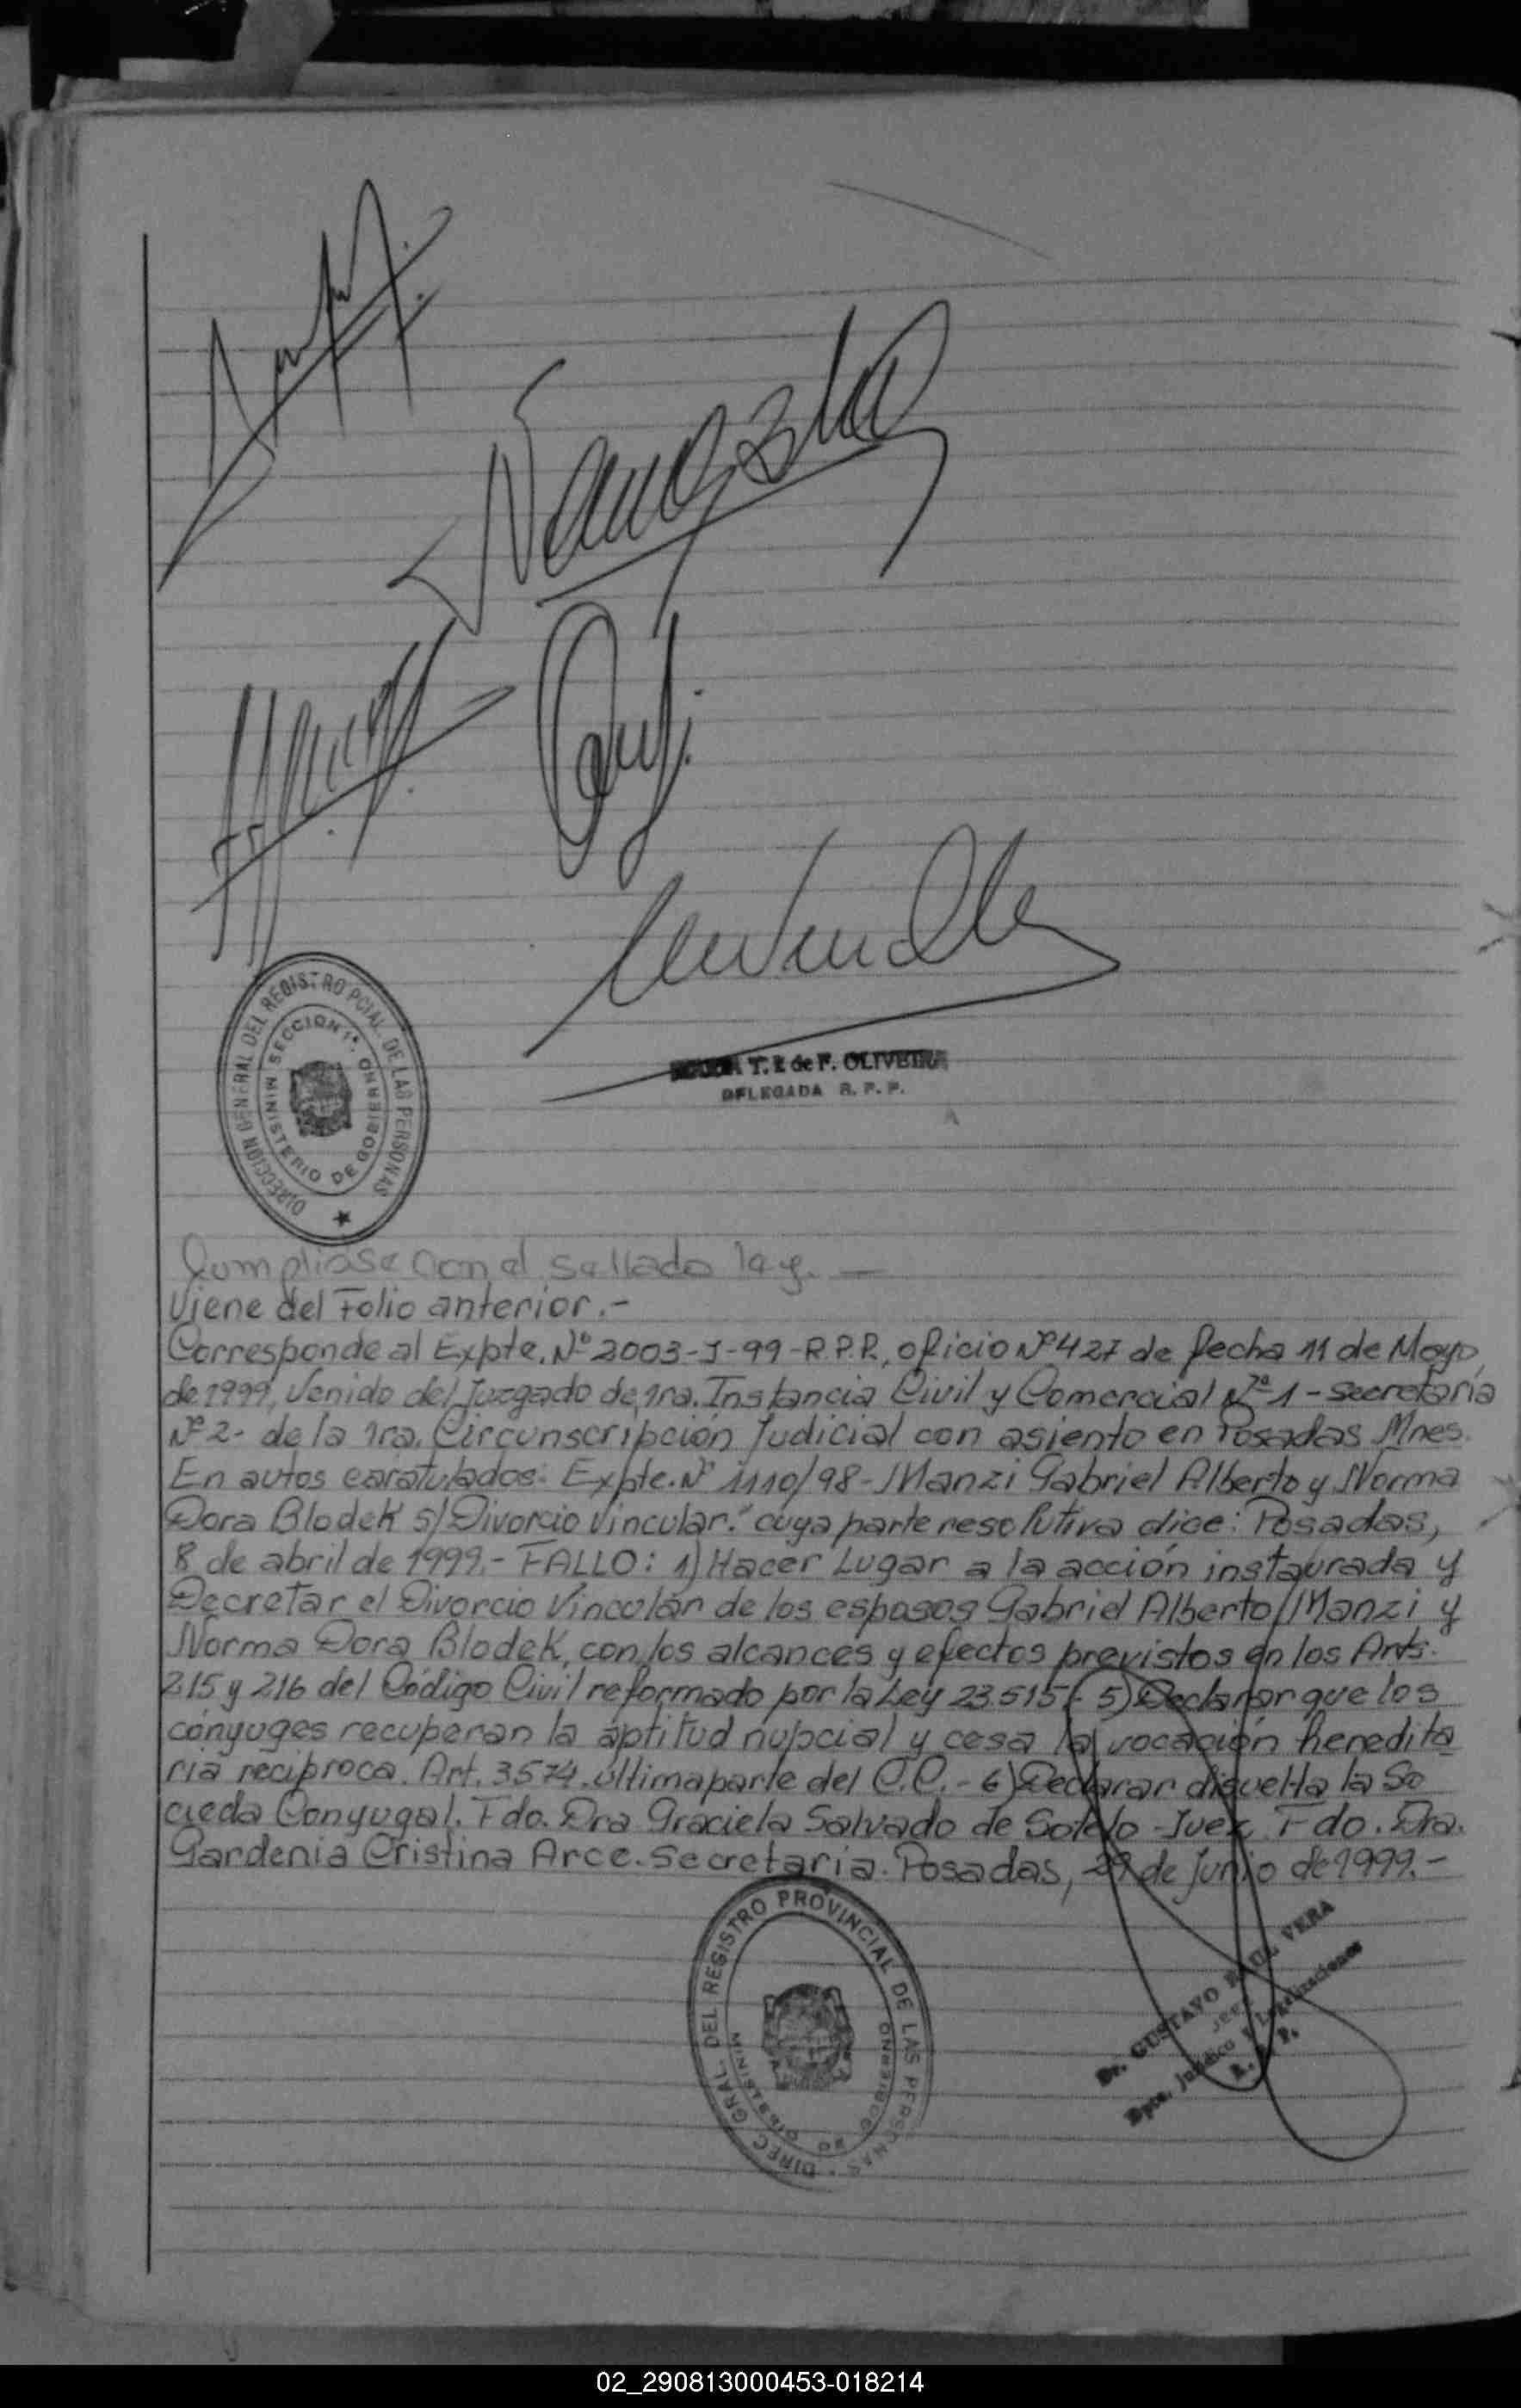 DIRECCION GENERAL DEL REGISTRO PCIAL. DE LAS PERSONAS
SECCION 1ª.
MINISTERIO DE GOBIERNO
T. de F. OLIVEIRA
DELEGADA R. P. P.
Cumpliose con el sellado ley. —
Viene del Folio anterior.-
Corresponde al Expte. Nº 2003-J-99-R.P.P., oficio Nº 427 de fecha 11 de Mayo
de 1999, Venido del Juzgado de 1ra. Instancia Civil y Comercial Nº 1 - secretaría
Nº 2- de la 1ra. Circunscripción Judicial con asiento en Posadas Mnes.
En autos caratulados: Expte. Nº 1110/98- Manzi Gabriel Alberto y Norma
Dora Blodek s/ Divorcio Vincular." cuya parte resolutiva dice: Posadas,
8 de abril de 1999.- FALLO: 1) Hacer Lugar a la acción instaurada y
Decretar el Divorcio Vincular de los esposos Gabriel Alberto Manzi y
Norma Dora Blodek, con los alcances y efectos previstos en los Arts.
215 y 216 del Código Civil reformado por la Ley 23.515 - 5) Declarar que los
cónyuges recuperan la aptitud nupcial y cesa la vocación heredita
ria recíproca. Art. 3574. última parte del C.C.- 6) Declarar disuelta la So
cieda Conyugal. Fdo. Dra Graciela Salvado de Sotelo - Juez. Fdo. Dra.
Gardenia Cristina Arce. Secretaria. Posadas, 29 de Junio de 1999.-
DIREC. GRAL. DEL REGISTRO PROVINCIAL DE LAS PERSONAS
MINISTERIO DE GOBIERNO
Dr. GUSTAVO RAUL VERA
JEFE
Dpto. Jurídico y Legalizaciones
R. P. P.
02_290813000453-018214